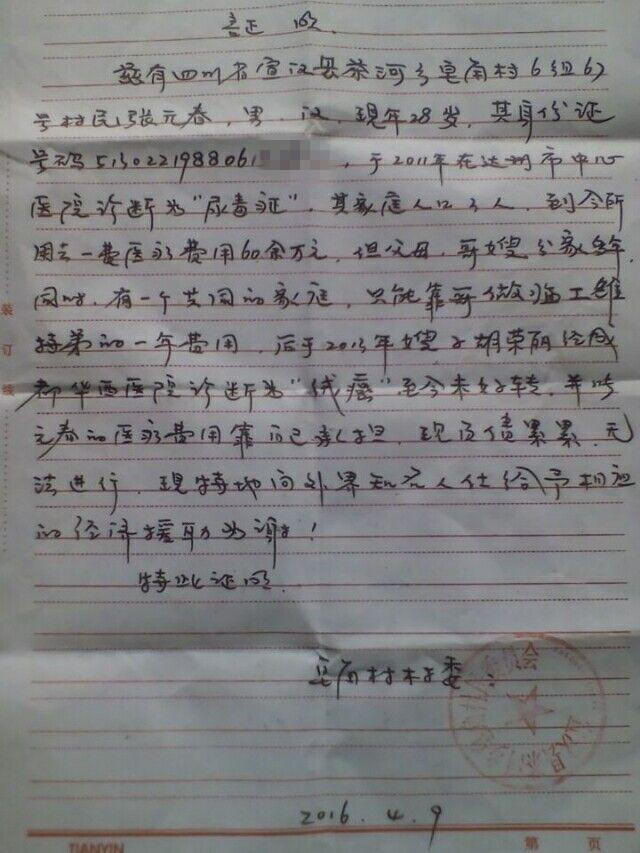 证 明
兹有四川省宣汉县茶河乡皂角村6组67
号村民张元春，男，汉，现年28岁，其身份证
号码5130221988061，于2011年在达州市中心
医院诊断为“尿毒证”，其家庭人口3人，到今所
用去一费医疗费用60余万元，但父母，哥嫂分家多年，
同时，有一个共同的家庭，只能靠哥做临工维
持弟的一年费用，后于2013年嫂子胡荣丽经成
都华西医院诊断为“绒癌”至今未好转，并张
元春的医疗费用靠自己承担，现负债累累，无
法进行，现特地向外界知名人仕给予相应
的经济援助为谢！
特此证明
皂角村村委
2016.4.9
装
订
线
TIANYIN
第 页